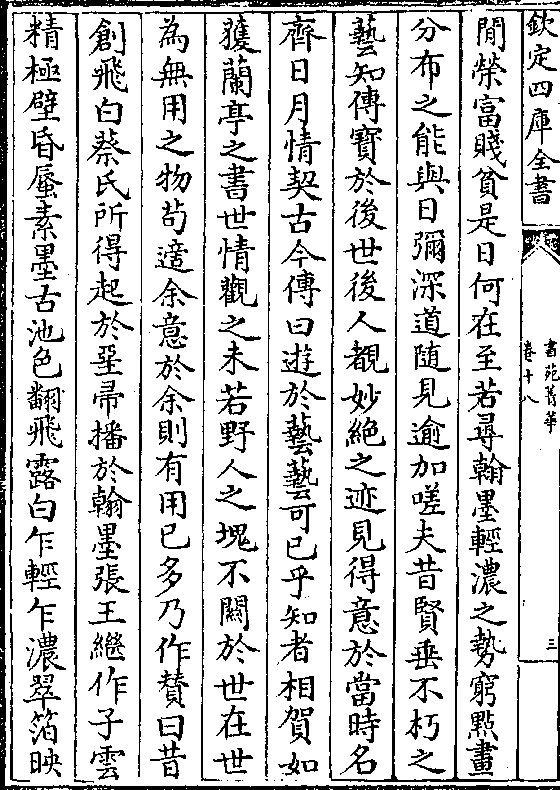 欽定四庫全書
書苑菁華
卷十八
三
閒榮富賤貧是日何在至若尋翰墨輕濃之勢窮㸃畫
分布之能與日彌深道随見逾加嗟夫昔賢垂不朽之
藝知傳寶於後世後人覩妙絶之迹見得意於當時名
齊日月情契古今傳曰遊於藝藝可已乎知者相賀如
獲蘭亭之書世情觀之未若野人之塊不闗於世在世
為無用之物苟適余意於余則有用已多乃作賛曰昔
創飛白蔡氏所得起於堊帚播於翰墨張王繼作子雲
精極壁昏蜃素墨古池色翻飛露白乍輕乍濃翠箔映